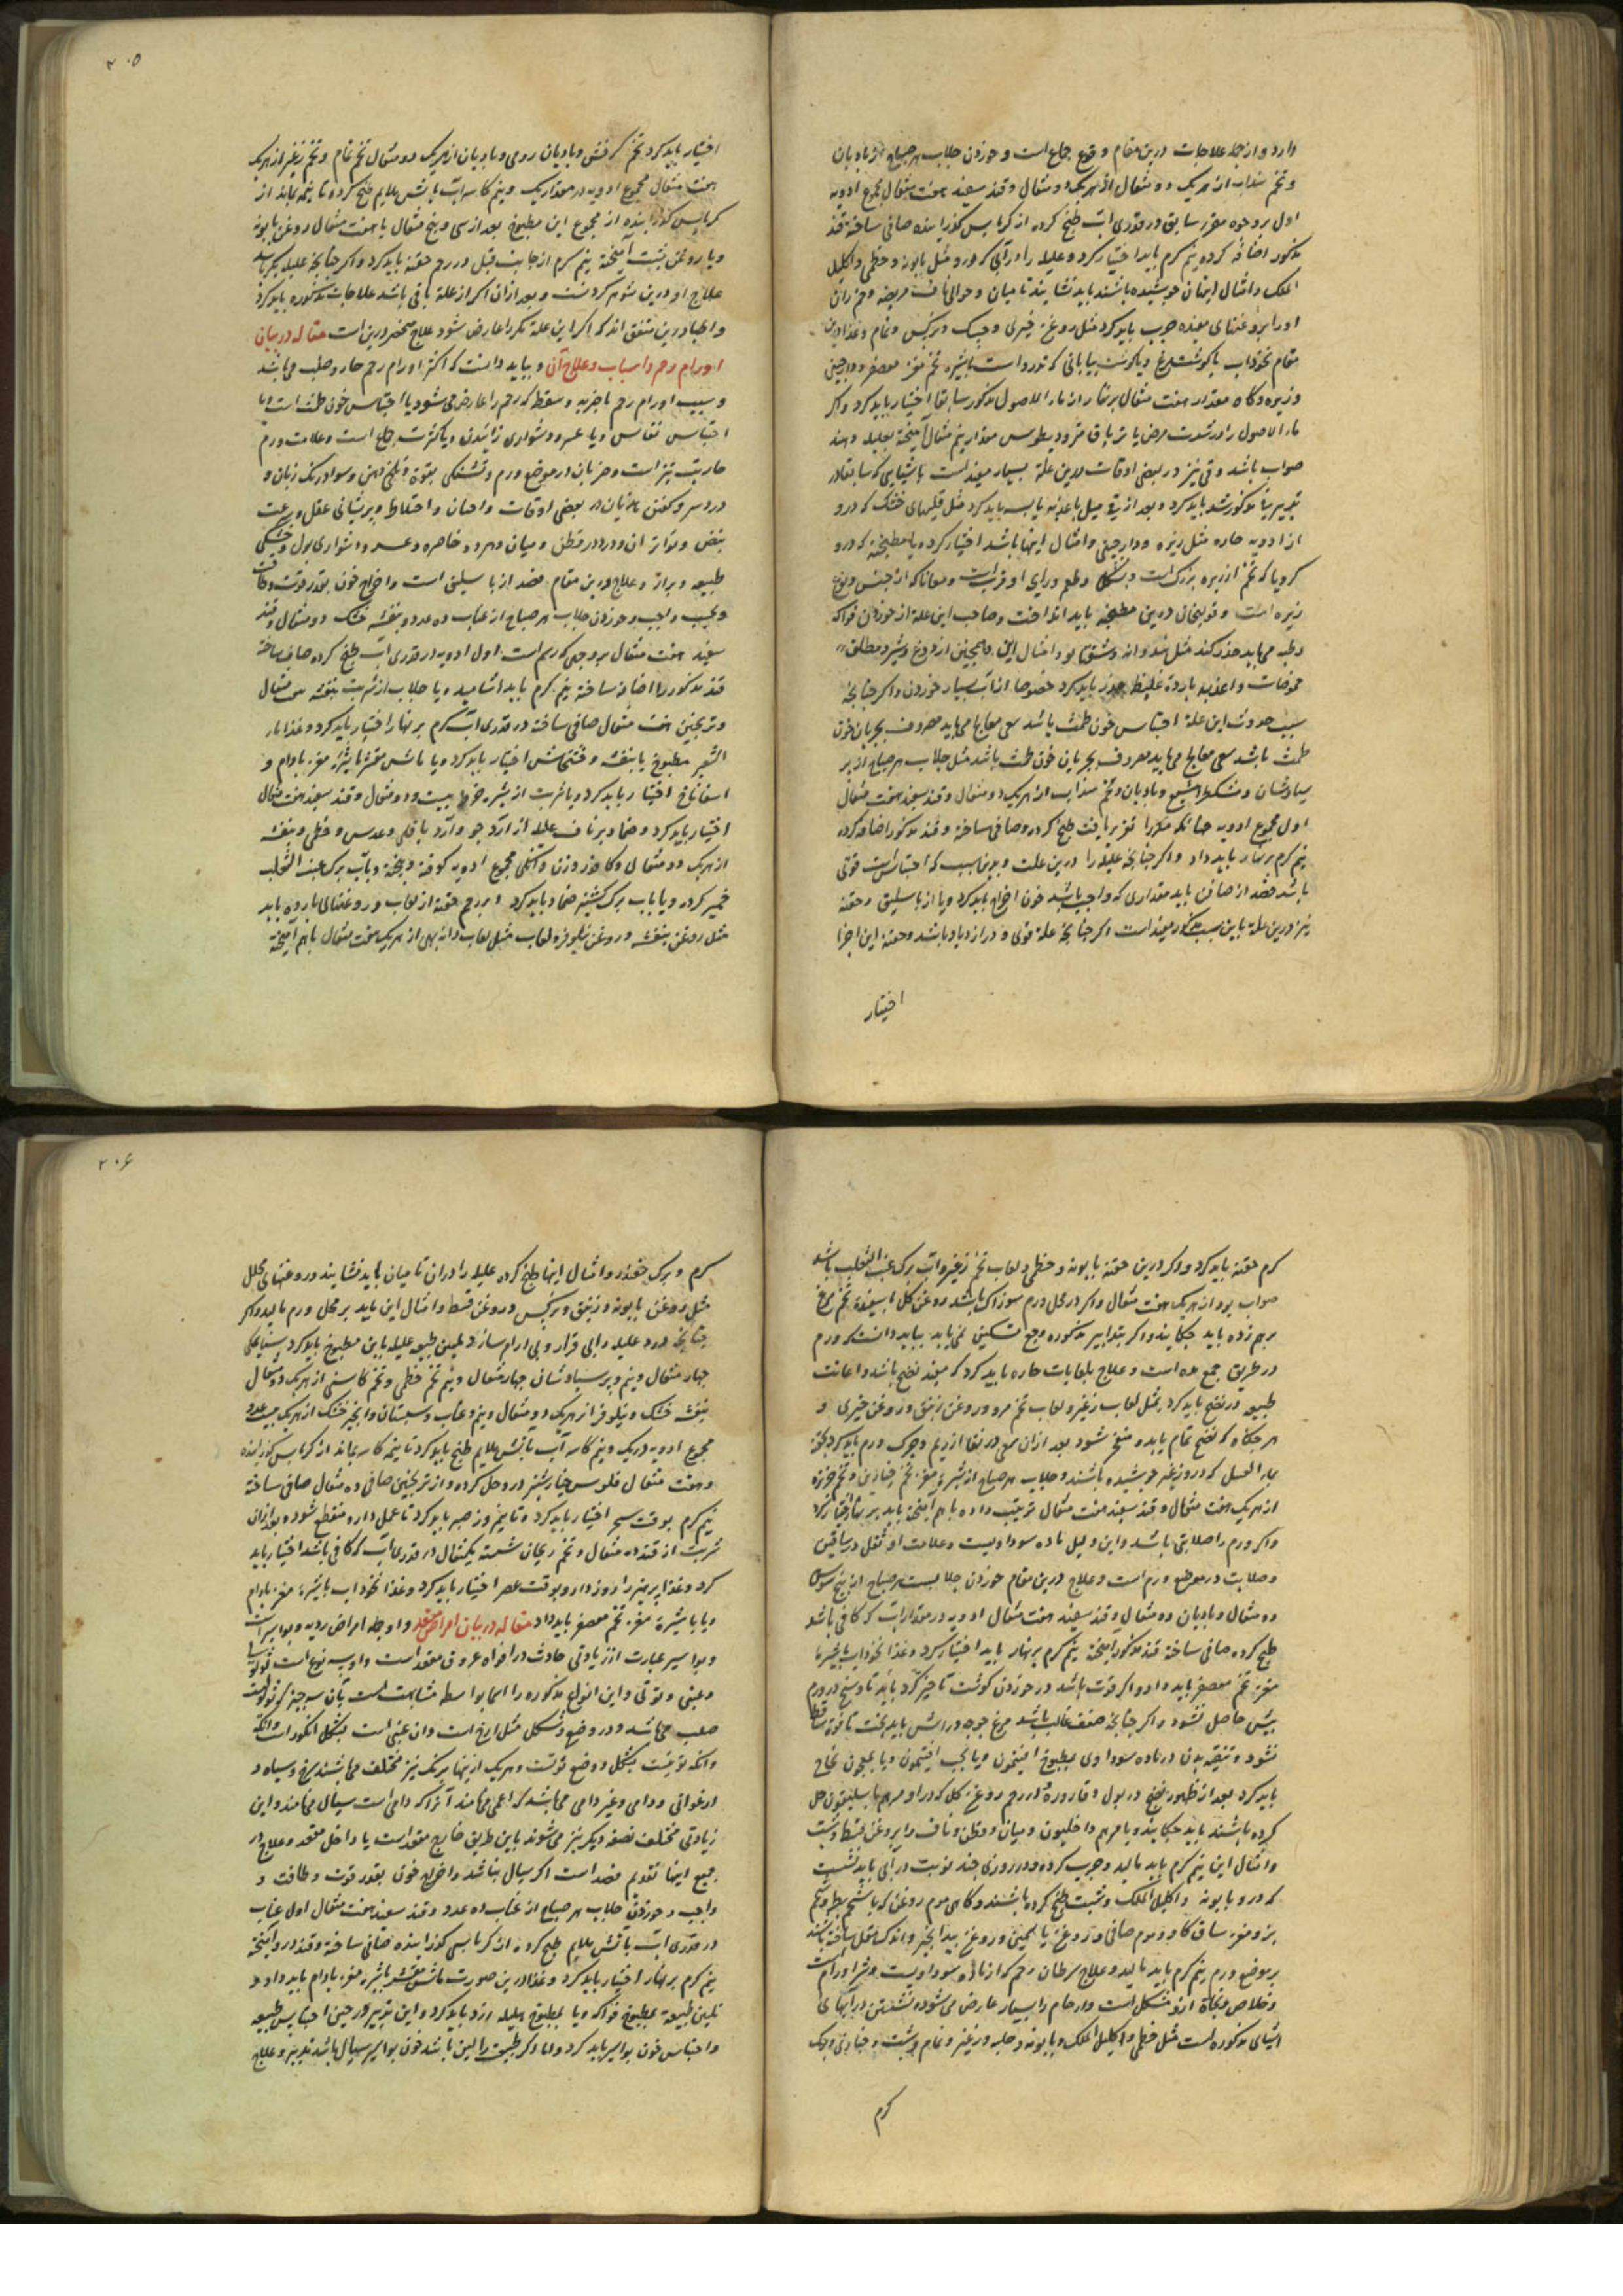 دارد و از جمله علاجات درین مقام وقوع جماع است و خوردن جلاب هر صباح از بادیان
و تخم سداب از هر یک دو مثقال و قند سفید هفت مثقال مجموع ادویه
اول بر وجوه مقرر سابق در قدری آب طبخ کرده از کرباس گذرانیده صافی ساخته قند
مذکور اضافه کرده نیم گرم باید اختیار کرد و علیله را در آبی که درو مثل بابونه و خطمی و اکلیل
الملک و امثال اینان جوشیده باشند باید نشانید تا میان و حوالی ناف مریضه و
او را بروغنهای مفیده چرب باید کرد مثل روغن خیری و و نرگس و نمام و غذا درین
مقام نخوداب با گوشت مرغ و یا گوشت بیابانی که تورد است با شیره تخم مغز معصفر و دارچینی
و زیره و گاه مقدار هفت مثقال بر نهار از ماء الاصول مذکور سابقا اختیار باید کرد و اگر
ماء الاصول را در شدت مرض با تریاق مثرودیطوس مقدار نیم مثقال آمیخته بعلیله دهند
صواب باشد و قی نیز در بعضی اوقات درین علة بسیار مفید است باشیایی که سابقا در
مذکور شد باید کرد و بعد از قی میل باغذیه یابسه باید کرد مثل قلیهای خشک که درو
از ادویه حاره مثل زیره و دارچینی و امثال اینها باشد اختیار کرده یا مطنجنه که درو
کرویا که تخم از زیره بزرگ است و بشکل و طعم و رای او قریب است و همانا که از جنس و نوع
زیره است و خولنجان درین مطنجنه باید انداخت و صاحب این علة از خوردن فواکه
رطبه می باید حذر کند مثل هندوانه و شفتالو و امثال این و همچنین از دوغ و شیر و مطلق
حموضات و اغذیه بارده غلیظه حذر باید کرد خصوصا از آب بسیار خوردن و اگر چنانچه
سبب حدوث این علة احتباس خون طمث باشد سعی معالج می باید مصروف بجریان خون
طمث باشد سعی معالج می باید مصروف بجریان خون طمث باشد مثل جلاب هر صباح از پر
سیاوشان و مشکطرامشیع و بادیان و تخم سداب از هر یک دو مثقال و قند سفید هفت مثقال
اول مجموع ادویه چنانکه مکررا تقریر یافت طبخ کرده و صافی ساخته و قند مذکور اضافه کرده
نیم گرم بر نهار باید داد و اگر چنانچه علیله را درین علت و بدین سبب که احتباس است قوتی
باشد فصد از صافن باید مقداری که واجب باشد خون اخراج باید کرد و یا از باسلیق و حقنه
نیز درین علة باین سبب مذکور مفید است اگر چنانچه علة قوی و در ازدیاد باشد و حقنه این اجزا
اختیار
۲۰۵
اختیار باید کرد تخم کرفس و بادیان رومی و بادیان از هر یک دو مثقال تخم نمام و تخم زغیر از هر یک
هفت مثقال مجموع ادویه در مقدار یک و نیم کاسه آب بآتش ملایم طبخ کرده تا نیمه بماند از
کرباس گذرانیده از مجموع این مطبوخ بعد از سی و پنج مثقال با هفت مثقال روغن بابونه
و یا روغن شبت آمیخته نیم گرم از جانب قبل در رحم حقنه باید کرد و اگر چنانچه علیله بکر باشد
علاج او درین شوهر کردنست و بعد از آن اگر از علة باقی باشد علاجات مذکوره باید کرد
و اطبا درین متفق اند که اگر این علة بکر را عارض شود علاج منحصر درین است مقاله در بیان
اورام رحم و اسباب و علاج آن و بباید دانست که اکثر اورام رحم حار و صلب می باشد
و سبب اورام رحم یا ضربه و سقطه که رحم را عارض می شود یا احتباس خون طمث است یا
احتباس نفاس و یا عسر و دشواری زائیدن و یا کثرت جماع است و علامت ورم
حار تب تیز است و ضربان در موضع ورم و تشنگی بقوة و تلخی دهن و سواد رنگ زبان و
درد سر و گفتن هذیان در بعضی اوقات و احیان و اختلاط و پریشانی عقل و سرعت
نبض و تواتر آن و درد در قطن و میان و هر دو خاصره و عسر و دشواری بول و خشکی
طبیعه و براز و علاج درین مقام فصد از باسلیق است و اخراج خون بقدر قوت و طاقت
و بحسب واجب و خوردن جلاب هر صباح از عناب ده عدد و بنفشه خشک دو مثقال و قند
سفید هفت مثقال بر وجهی که رسم است اول ادویه در قدری آب طبخ کرده صاف ساخته
قند مذکور را اضافه ساخته نیم گرم باید آشامید و یا جلاب از شربت بنفشه سی مثقال
و ترنجبین هفت مثقال صافی ساخته در قدری آب گرم بر نهار اختیار باید کرد و غذا ماء
الشعیر مطبوخ با بنفشه و خشخاش اختیار باید کرد و یا ماش مقشر با شیرۀ مغز بادام و
اسفاناخ اختیار باید کرد و یا شربت از شیرۀ خرما بیست و دو مثقال و قند سفید هفت مثقال
اختیار باید کرد و ضماد بر ناف علیله از آرد جو و آرد باقلی و عدس و خطمی و بنفشه
از هر یک دو مثقال و کافور وزن دانگی مجموع ادویه کوفته و بیخته و بآب برگ عنب الثعلب
خمیر کرده و یا بآب برگ گشنیز ضماد باید کرد و بر رحم حقنه از لعاب و روغنهای بارده باید
مثل روغن بنفشه و روغن نیلوفر و لعاب مثل لعاب دانه بهی از هر یک هفت مثقال باهم آمیخته
گرم حقنه باید کرد و اگر درین حقنه بابونه و خطمی و لعاب تخم زغیر و آب برگ عنب الثعلب باشد
صواب بود از هر یک هفت مثقال و اگر در محل ورم سوزاک باشد روغن گل با سفیدۀ تخم مرغ
بر هم زده باید چکانید و اگر بتدابیر مذکوره وجع تسکین نمی یابد بباید دانست که ورم
در طریق جمع مده است و علاج بلعابات حاره باید کرد که مفید نضج باشد و اعانت
طبیعه در نضج باید کرد بمثل لعاب زغیر و لعاب تخم مرو و روغن زنبق و روغن خیری و
هر چگاه که نضج تمام یابد و منفجر شود بعد از آن سعی در نقا از ریم و چرک ورم باید کرد بحقنه
ماء العسل که درو زغیر جوشیده باشند و جلاب هر صباح از شیرۀ مغز تخم خیارین و تخم خربزه
از هر یک هفت مثقال و قند سفید هفت مثقال ترتیب داده باهم آمیخته باید بر نهار اختیار کرد
و اگر ورم را صلابتی باشد و این دلیل ماده سوداویست و علامت او ثقل در ساقین
و صلابت در موضع ورم است و علاج درین مقام خوردن جلابست هر صباح از بیخ سوس
دو مثقال و بادیان دو مثقال و قند سفید هفت مثقال ادویه در مقدار آب که کافی باشد
طبخ کرده صافی ساخته قند مذکور آمیخته نیم گرم بر نهار باید اختیار کرد و غذا نخوداب با شیرۀ
مغز تخم معصفر باید داد و اگر قوت باشد در خوردن گوشت تاخیر کرد باید تا در ورم
بیش حاصل نشود و اگر چنانچه ضعف غالب باشد مرغ جوجه در آش باید پخت تا قوة ساقط
نشود و تنقیه بدن در ماده سوداوی بمطبوخ افتیمون و یا بحب افتیمون و یا بمعجون نجاح
باید کرد بعد از ظهور نضج در بول و قاروره و در رحم روغن گل که درو مرهم باسلیقون حل
کرده باشند باید چکانید و یا مرهم داخلیون و میان و قطن و ناف را بروغن قسط و شبت
و امثال این نیم گرم باید مالید و چرب کرده و در روزی چند نوبت در آبی باید نشست
که درو بابونه و اکلیل الملک و شبت طبخ کرده باشند و گاهی موم روغن که با شحم بط و شحم
بز و مغز ساق گاو و موم صافی و روغن یاسمین و روغن بید انجیر و اندک مقل ساخته باشند
بر موضع ورم نیم گرم باید مالید و علاج سرطان رحم که از مادۀ سوداویست و شر اورام است
و خلاص و نجاة ازو مشکل است و ارحام را بسیار عارض می شود نشستن در آبهای
اشیای مذکوره است مثل خطمی و اکلیل الملک و بابونه و حلبه و زغیر و نمام و شبت و خبازی و
گرم
۲۰۶
گرم و برگ چغندر و امثال اینها طبخ کرده علیله را در آن تا میان باید نشانید و روغنهای محلل
مثل روغن بابونه و زنبق و نرگس و روغن قسط و امثال این باید بر محل ورم مالید و اگر
چنانچه درد علیله را بی قرار و بی آرام سازد تلیین طبیعه علیله باین مطبوخ باید کرد سناء مکی
چهار مثقال و نیم و پرسیاوشان چهار مثقال و نیم تخم خطمی و تخم کاسنی از هر یک دو مثقال
بنفشه خشک و نیلوفر از هر یک دو مثقال و نیم و عناب و سپستان و انجیر خشک از هر یک بیست عدد
مجموع ادویه در یک و نیم کاسه آب بآتش ملایم طبخ باید کرد تا نیم کاسه بماند از کرباس گذرانیده
و هفت مثقال فلوس خیارشنبر در و حل کرده و از ترنجبین صافی ده مثقال صافی ساخته
نیم گرم بوقت سحر اختیار باید کرد و تا نیم روز صبر باید کرد تا عمل دارو منقطع شود و بعد از آن
شربت از قند ده مثقال و تخم ریحان شسته یک مثقال در قدری آب که کافی باشد اختیار باید
کرد و غذا پرهیز را روز دارو بوقت عصر اختیار باید کرد و غذا نخوداب با شیرۀ مغز بادام
و یا با شیرۀ مغز تخم معصفر باید داد مقاله در بیان امراض مقعد و اوجاع امراض ردیه و بواسیر است
و بواسیر عبارت از زیادتی حادث در افواه عروق مقعد است و او به سه نوع است ثولولی
و عنبی و توتی و این انواع مذکوره را اسما بواسطه مشابهت است بآن سه چیز که ثولولیست
صلب می باشد و در وضع و شکل مثل است و آن عنبی است بشکل انگور است و آنکه
و آنکه توتیست بشکل و وضع توتست و هر یک از اینها برنگ نیز مختلف می باشند سرخ و سیاه و
ارغوانی و دامی و غیر دامی می باشد که اعمی می نامند آنرا که دامی است سیال می نامند و این
زیادتی مختلف بصفة دیگر نیز می شوند باین طریق خارج مقعد است یا داخل مقعد و علاج در
جمیع اینها تقدیم فصد است اگر سیال نباشد و اخراج خون بقدر قوت و طاقت و
واجب و خوردن جلاب هر صباح از عناب ده عدد و قند سفید هفت مثقال اول عناب
در قدری آب بآتش ملایم طبخ کرده از کرباس گذرانیده صافی ساخته و قند در و آمیخته
نیم گرم بر نهار اختیار باید کرد و غذا درین صورت ماش مقشر با شیرۀ مغز بادام باید داد و
تلیین طبیعة بمطبوخ فواکه و یا بمطبوخ هلیله زرد باید کرد و این تدبیر در حین احتباس طبیعه
و احتباس خون بواسیر باید کرد و اما اگر طبیعت را لین باشد خون بواسیر سیال باشد تدبیر و علاج